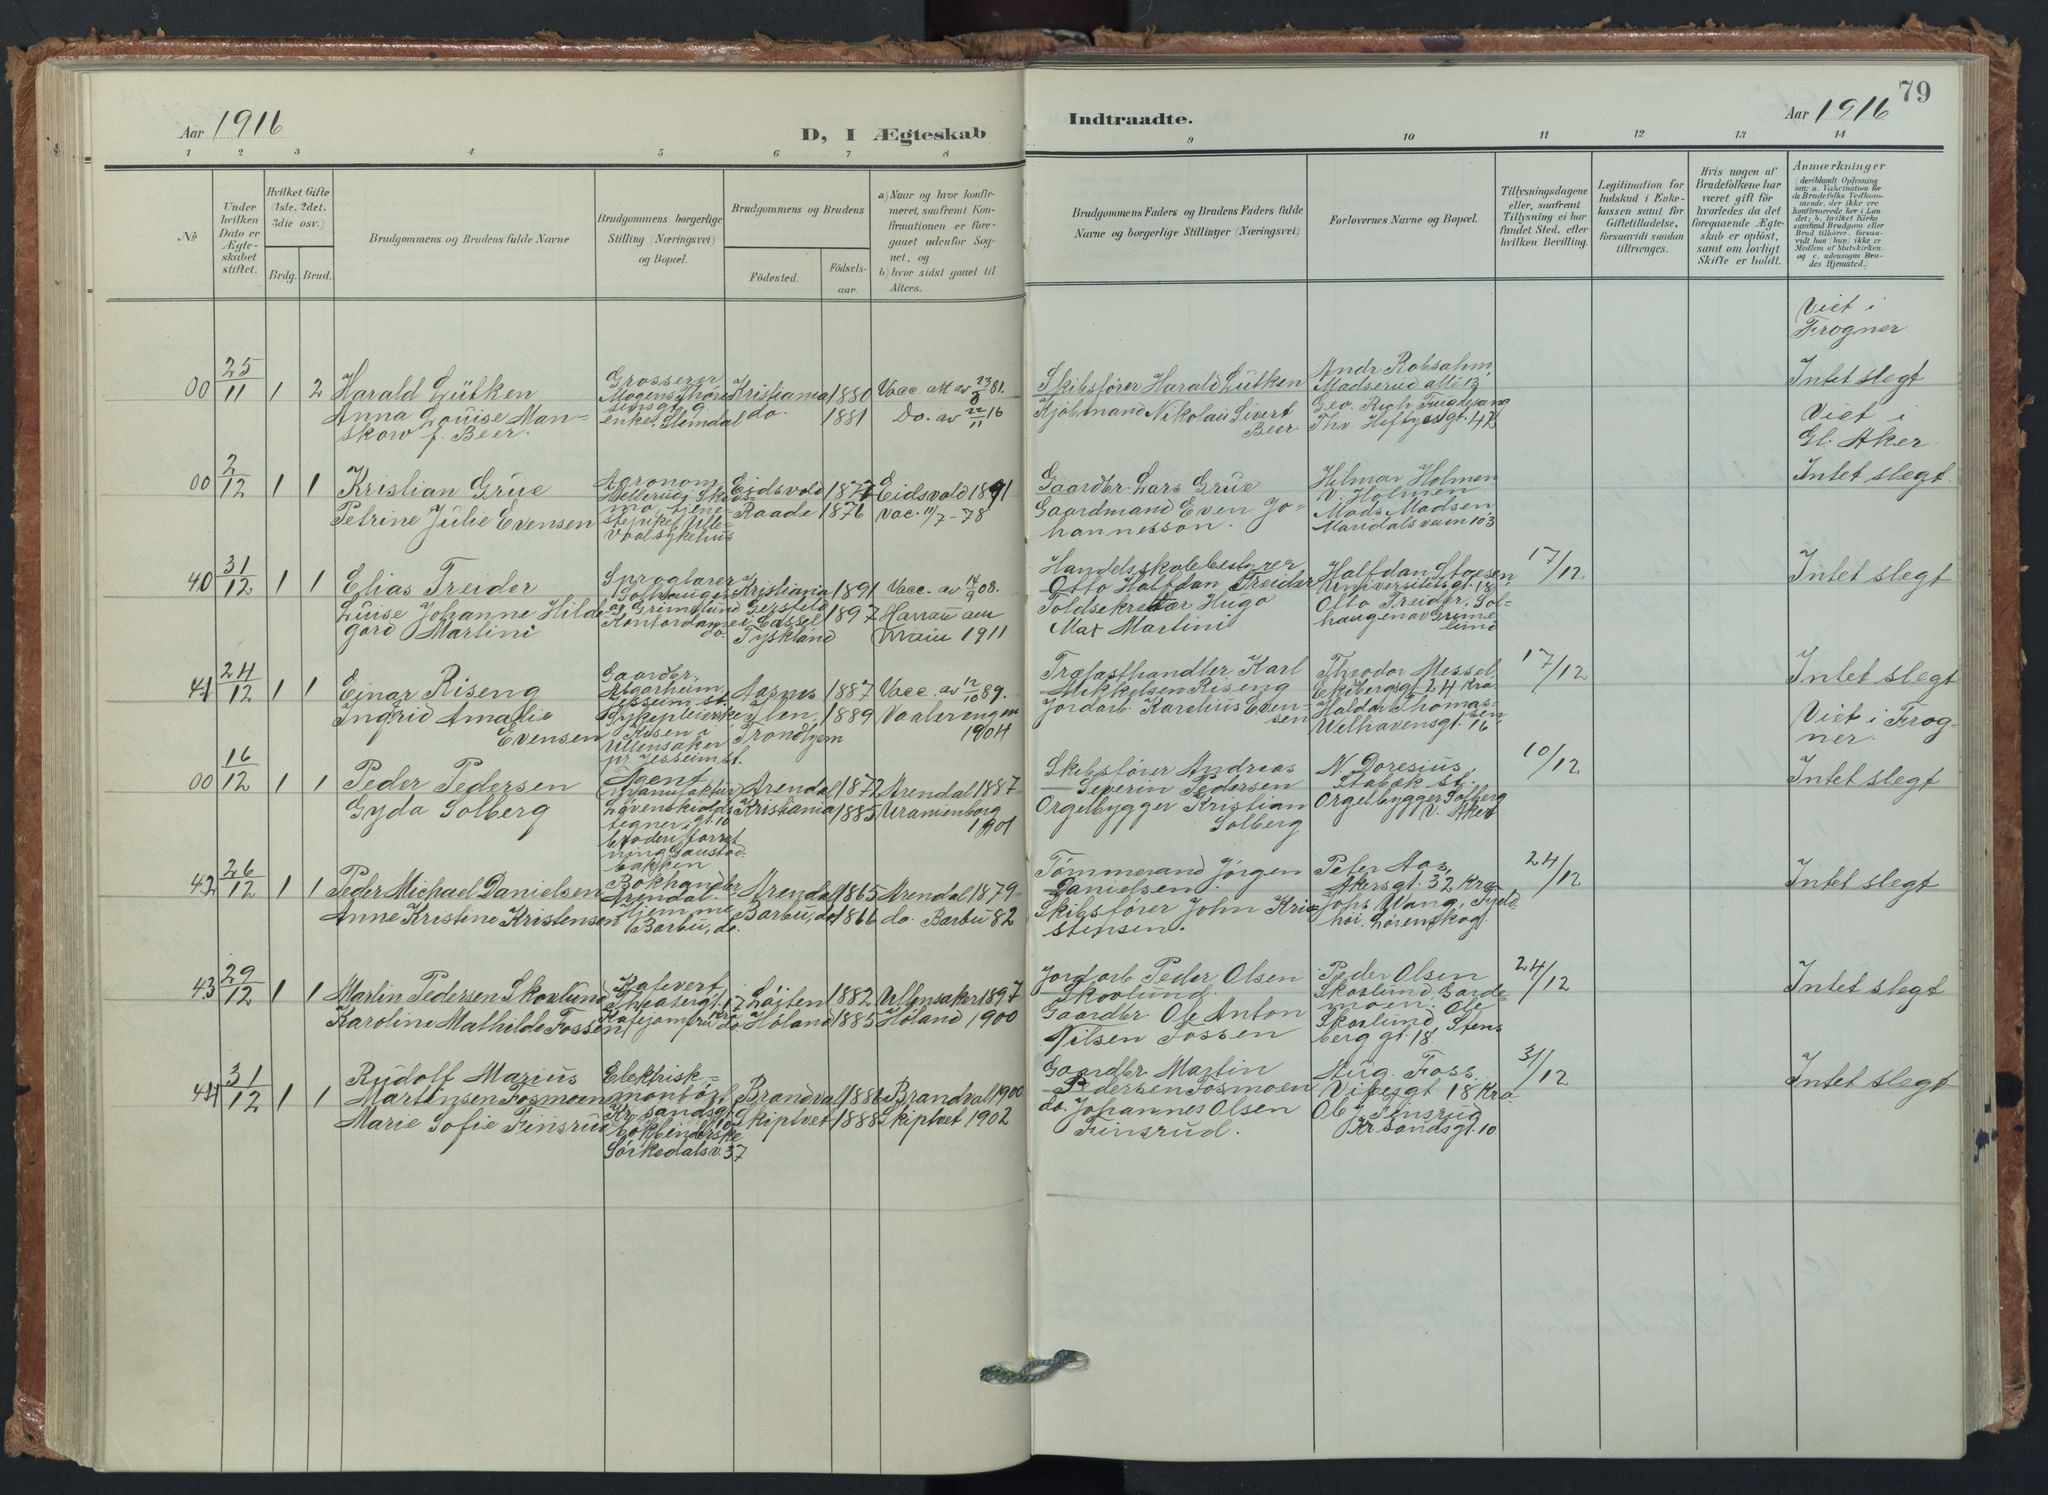 79
Aar 1916
D, I Ægteskab
Indtraadte.
Aar 1916
1 2 3 4 5 6 7 8
9 10 11 12 13 14
№
Under hvilken Dato er Ægteskabet stiftet.
Hvilket Gifte (1ste, 2det, 3die osv.)
Brdg. Brud.
Brudgommens og Brudens fulde Navne
Brudgommens borgerlige Stilling (Næringsvei) og Bopæl.
Brudgommens og Brudens
Födested.
Födselsaar.
a) Naar og hvor konfirmeret, saafremt Konfirmationen er foregaaet udenfor Sognet, og
b) hvor sidst gaaet til Alters.
Brudgommens Faders og Brudens Faders fulde Navne og borgerlige Stillinger (Næringsvei)
Forlovernes Navne og Bopæl.
Tillysningsdagene eller, saafremt Tillysning ei har fundet Sted, efter hvilken Bevilling.
Legitimation for Indskud i Enkekassen samt for Giftetilladelse, forsaavidt saadan tiltrænges.
Hvis nogen af Brudefolkene har været gift för hvorledes da det foregaaende Ægteskab er oplöst, samt om lovligt Skifte er holdt.
Anmærkninger
(deriblandt Oplysning om: a. Vakcination for de Brudefolks Vedkommende, der ikke ere konfirmerede her i Landet; b. hvilket Kirkesamfund Brudgom eller Brud tilhörer, forsaavidt han (hun) ikke er Medlem af Statskirken, og c. udensogns Brudes Hjemsted.
Viet i
Frogner
00 25/11 1 2
Harald Lütken
Anna Louise Manskow f. Beer.
Grosserer
Slemdal
Kristiania 1880
do. 1881
Vacc. att av 23/8 81.
Do. av 22/11 16
Skibsfører Harald Lütken
Kjøbmand Nikolai Sivert
Beer
Andr. Robsahm,
Madserud allé 13
Geo. Rich Frugdesang
Thv. Heftyesgt. 42
Intet slegt
Viet i
Gl. Aker.
00 2/12 1 1
Kristian Grue
Petrine Julie Evensen
Agronom
Hellerud, Skedsmo, tjenestepike, Ullevaalsykehus
Eidsvold 1877
Raade 1876
Eidsvold 1891
Vac. 11/7-78
Gaardbr. Lars Grue
Gaardmand Even Johannesson.
Hilmar Holmen
V. Holmen
Mads Madsen
Maridalsveien 103
Intet slegt
40 31/12 1 1
Elias Treider
Luise Johanne Hildegard Martini
Sproglærer
Solhaugen
av Grimelund
Kontordame
do.
Kristiania 1891
Gersfeld 1897
Cassel
Tyskland
Vacc. av 14/9 08.
Hanau am
Main 1911
Handelsskolebestyrer
Otto Halfdan Treider
Toldsekretær Hugo
Max Martini
Halfdan Stoesen,
Universitetsgt. 18
Otto Treider, Solhaugen av Grimelund
17/12
Intet slegt
41 24/12 1 1
Einar Riseng
Ingrid Amalie
Evensen
Gaardbr.
Algarheim,
Jessheim st.
Sykepleierske
Risen i
Ullensaker
pr. Jessheim st.
Aasnes 1887
Ilen, 1889
Trondhjem
Vacc. av 12/10 89.
Vaalerengen
1904
Trælasthandler Karl
Mikkelsen Riseng
Jordarb. Karelius Evensen
Theodor Messel
Ekebergsgt. 24 Kra
Haldor Thomassen
Welhavensgt. 16
17/12
Intet slegt
Viet i Frogner.
00 16/12 1 1
Peder Pedersen
Gyda Solberg
Agent
(Manufaktur)
Løvenskioldsgt. 10
tegner i
broderiforretning Gaustadbakken
Arendal 1872
Kristiania 1885
Arendal 1887
Uranienborg
1901
Skibsfører Andreas
Severin Pedersen
Orgelbygger Kristian
Solberg
N. Doresius,
Stabæk st.
Orgelbygger Solberg
V. Aker
10/12
Intet slegt
42 26/12 1 1
Peder Michael Danielsen
Anne Kristine Kristensen
Bokhandler
Arendal.
Hjemme
Barbu, do.
Arendal 1865
Barbu, do 1866
Arendal 1879
do. Barbu 82
Tømmermand Jørgen
Danielsen.
Skibsfører John Kristensen.
Peter Aas,
Akersgt. 32 Kra
Johs Wang, Fjeldhøi, Lørenskog.
24/12
Intet slegt
43 29/12 1 1
Martin Pedersen Skovlund
Karoline Mathilde Fossen
Kafevert
Theatergt. 17
Kra
Kafejomfru do
Løiten 1882
Høland 1885
Ullensaker 1897
Høland 1900
Jordarb Peder Olsen
Skovlund.
Gaardbr. Ole Anton
Nilsen Fossen
Peder Olsen
Skovlund Gardemoen. Ole
Skovlund, Stensberggt. 18
24/12
Intet slegt
44 31/12 1 1
Rudolf Marius
Martinsen Fosmoen
Marie Sofie Finsrud
Elektriskmontør,
Kr.sandsgt. 10
bokbinderske
Sørkedalsv. 37
Brandval 1886
Skiptvet 1888
Brandval 1900
Skiptvet 1902
Gaardbr Martin
Pedersen Fosmoen
do. Johannes Olsen
Finsrud.
Aug. Foss
Vibesgt 18 Kra
Ole J. Finsrud
Kr.sandsgt. 10
31/12
Intet slegt